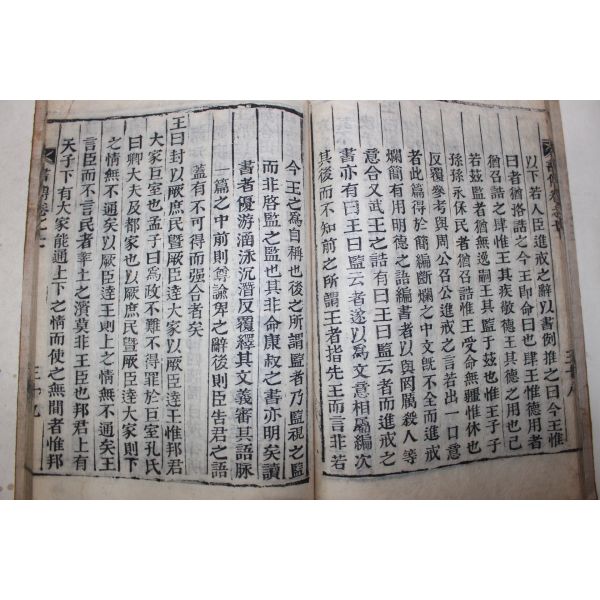 以下若人臣進戒之辭以書例推之曰今王惟
曰者猶洛誥之今王即命曰也肆王惟德用者
猶召誥之肆惟王其疾敬德王其德之用也已
若茲監者猶無逸嗣王其監于茲也惟王子子
孫孫永保民者猶召誥惟王受命無疆惟休也
反覆參考與周公召公進戒之言若出一口意
者此篇得於簡編斷爛之中文旣不全而進戒
爛簡有用明德之語編書者以與罔厲殺人等
意合又武王之誥有曰王曰監云者而進戒之
書亦有曰王曰監云者遂以爲文意相屬編次
其後而不知前之所謂王者指先王而言非若
今王之爲自稱也後之所謂監者乃監視之監
而非啓監之監也其非命康叔之書亦明矣讀
書者優游涵泳沉潛反覆繹其文義審其語脉
一篇之中前則尊諭卑之辭後則臣告君之語
蓋有不可得而强合者矣
王曰封以厥庶民曁厥臣達大家以厥臣達王惟邦君
大家巨室也孟子曰爲政不難不得罪於巨室孔氏
曰卿大夫及都家也以厥庶民曁厥臣達大家則下
之情無不通矣以厥臣達王則上之情無不通矣王
言臣而不言民者率土之濱莫非王臣也邦君上有
天子下有大家能通上下之情而使之無間者惟邦